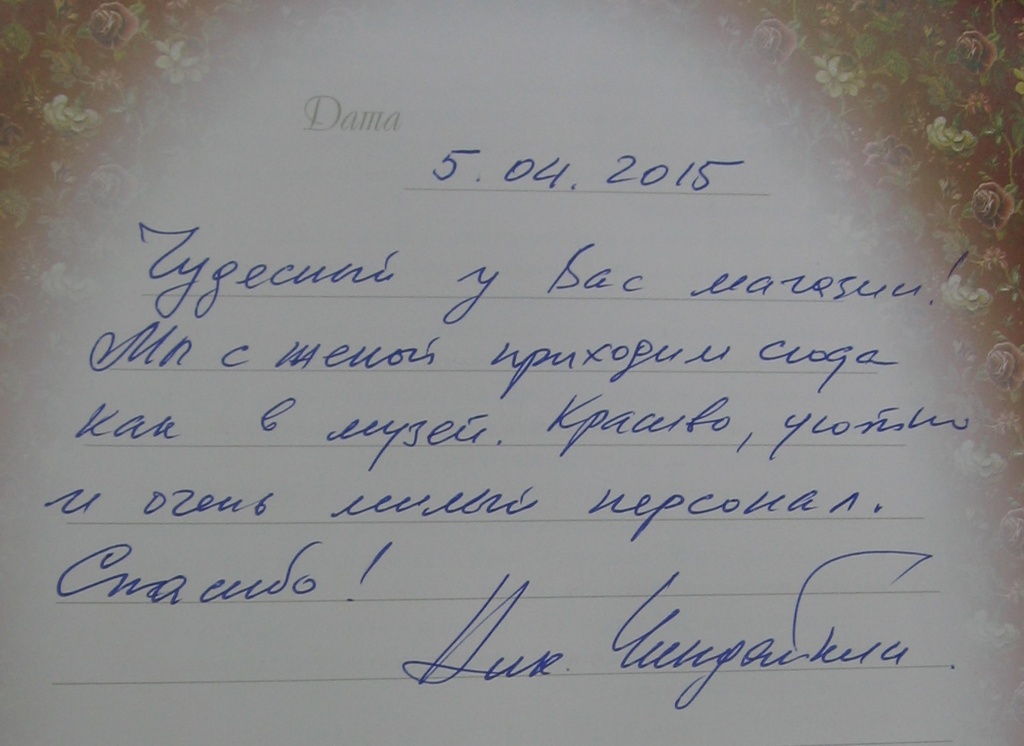 Дата
5.04.2015
Чудесный у Вас магазин!
Мы с женой приходим сюда
как в музей. Красиво, уютно
и очень милый персонал.
Спасибо!
Ник. Чиндяйкин